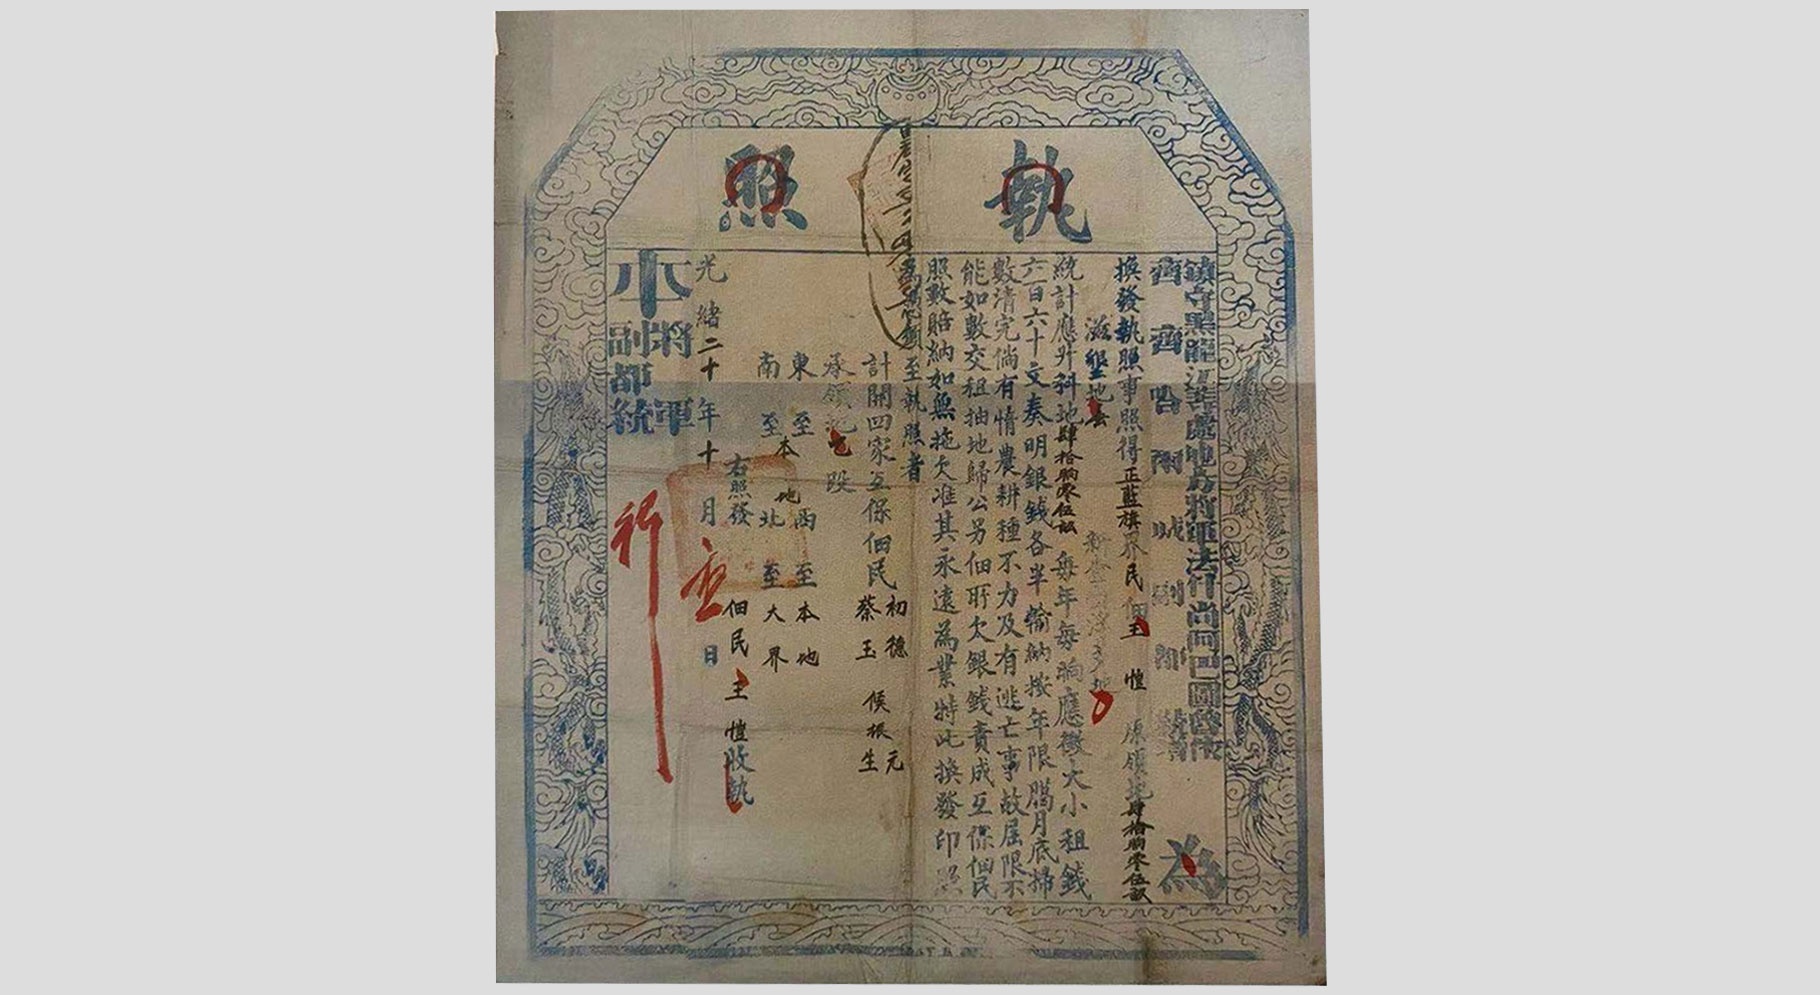 執照
鎮守黑龍江等處地方將軍法什尚阿巴圖魯依
齊齊哈爾城副都 為
換發執照事照得正藍旗界民佃王愷原領地肆拾晌零伍畝
滋墾地 新查 浮多地
統計應升科地肆拾晌零伍畝每年每晌應徵大小租錢
六百六十文奏明銀錢各半輸納按年限臈月底掃
數清完倘有惰農耕種不力及有逃亡事故屆限不
能如數交租抽地歸公另佃所欠銀錢責成互保佃民
照數賠納如無拖欠准其永遠為業特此換發印照
為憑須至執照者
計開四家互保佃民 初德元 侯振 蔡玉生
承領地 段
東至本地西至本地
南至 北至大界
右照發佃民王愷收執
光緒二十年十月 日
將軍
副都統
行